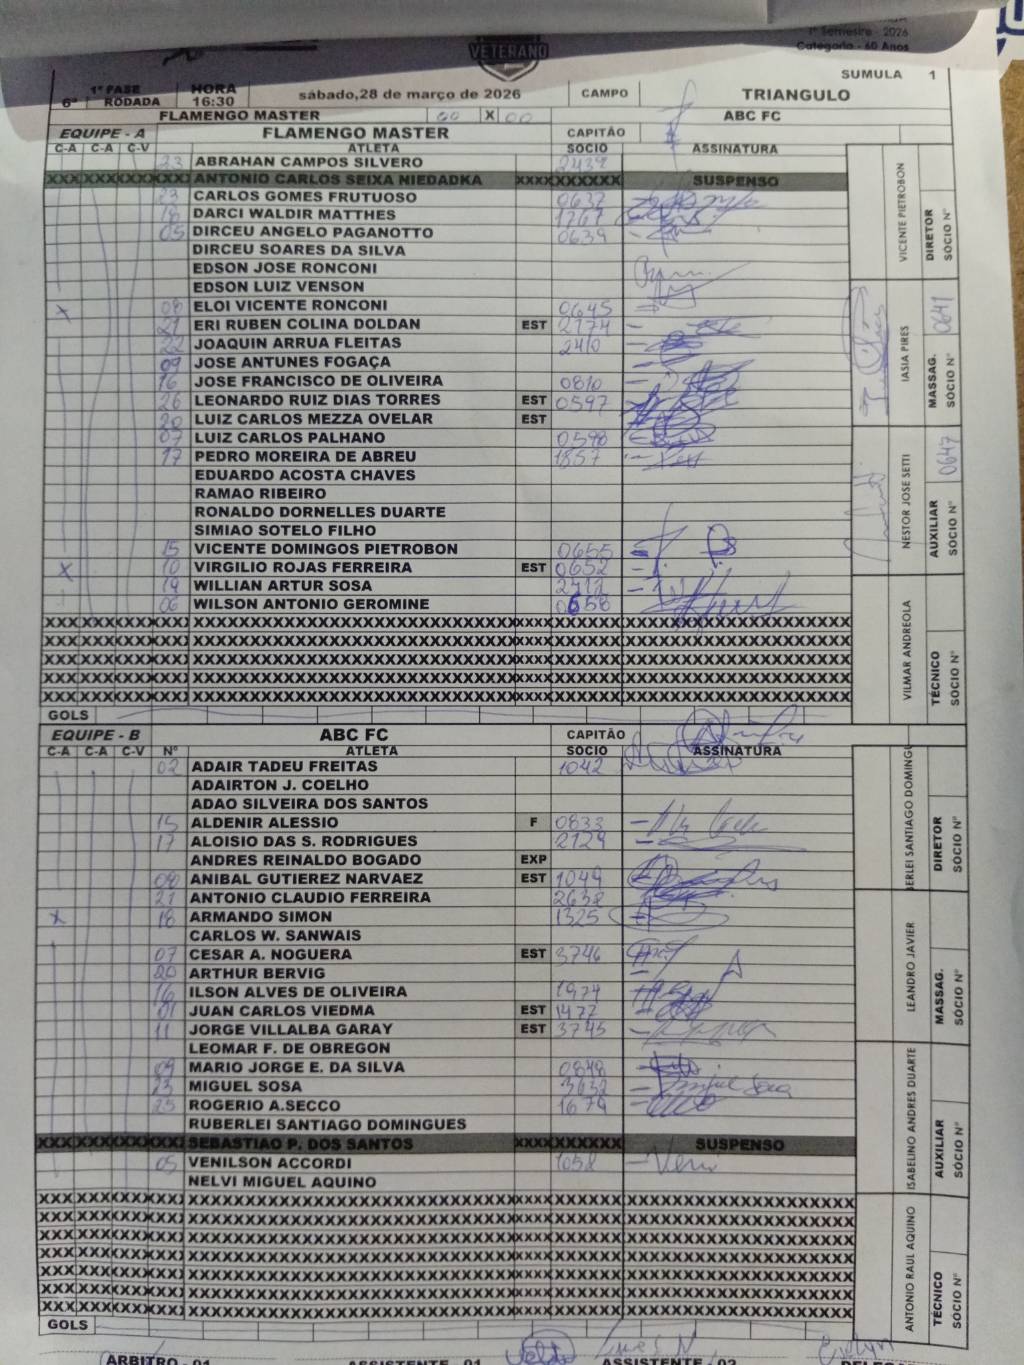 VETERANO
1º Semestre - 2026
Categoria - 60 Anos
SUMULA 1
1ª FASE HORA sábado,28 de março de 2026 CAMPO TRIANGULO
6ª RODADA 16:30
FLAMENGO MASTER 00 X 00 ABC FC
EQUIPE - A FLAMENGO MASTER CAPITÃO
C-A C-A C-V ATLETA SOCIO ASSINATURA
23 ABRAHAN CAMPOS SILVERO 2439
XXX XXX XXX XXX ANTONIO CARLOS SEIXA NIEDADKA XXXX XXXXXX SUSPENSO
23 CARLOS GOMES FRUTUOSO 0637
18 DARCI WALDIR MATTHES 1267
05 DIRCEU ANGELO PAGANOTTO 0639
DIRCEU SOARES DA SILVA
EDSON JOSE RONCONI
EDSON LUIZ VENSON
X 08 ELOI VICENTE RONCONI 0645
21 ERI RUBEN COLINA DOLDAN EST 2174
22 JOAQUIN ARRUA FLEITAS 2410
09 JOSE ANTUNES FOGAÇA
16 JOSE FRANCISCO DE OLIVEIRA 0810
26 LEONARDO RUIZ DIAS TORRES EST 0597
20 LUIZ CARLOS MEZZA OVELAR EST
07 LUIZ CARLOS PALHANO 0598
17 PEDRO MOREIRA DE ABREU 1857
EDUARDO ACOSTA CHAVES
RAMAO RIBEIRO
RONALDO DORNELLES DUARTE
SIMIAO SOTELO FILHO
15 VICENTE DOMINGOS PIETROBON 0655
X 10 VIRGILIO ROJAS FERREIRA EST 0652
19 WILLIAN ARTUR SOSA
06 WILSON ANTONIO GEROMINE 0658
VICENTE PIETROBON DIRETOR SOCIO Nº
IASIA PIRES MASSAG. SOCIO Nº 0641
NESTOR JOSE SETTI AUXILIAR SOCIO Nº 0647
VILMAR ANDREOLA TÉCNICO SOCIO Nº
GOLS
EQUIPE - B ABC FC CAPITÃO
C-A C-A C-V Nº ATLETA SOCIO ASSINATURA
02 ADAIR TADEU FREITAS 1042
ADAIRTON J. COELHO
ADAO SILVEIRA DOS SANTOS
15 ALDENIR ALESSIO F 0833
17 ALOISIO DAS S. RODRIGUES 2129
ANDRES REINALDO BOGADO EXP
ANIBAL GUTIEREZ NARVAEZ EST 1049
21 ANTONIO CLAUDIO FERREIRA 2638
X 18 ARMANDO SIMON 1325
CARLOS W. SANWAIS
07 CESAR A. NOGUERA EST 3746
20 ARTHUR BERVIG
16 ILSON ALVES DE OLIVEIRA 1974
01 JUAN CARLOS VIEDMA EST 1477
11 JORGE VILLALBA GARAY EST 3745
LEOMAR F. DE OBREGON
09 MARIO JORGE E. DA SILVA 0848
23 MIGUEL SOSA 3632 Miguel Sosa
25 ROGERIO A.SECCO 1679
RUBERLEI SANTIAGO DOMINGUES
XXX XXX XXX XXX SEBASTIAO P. DOS SANTOS XXXX XXXXXX SUSPENSO
05 VENILSON ACCORDI 1058 Veni
NELVI MIGUEL AQUINO
BERLEI SANTIAGO DOMINGU DIRETOR SOCIO Nº
LEANDRO JAVIER MASSAG. SOCIO Nº
ISABELINO ANDRES DUARTE AUXILIAR SOCIO Nº
ANTONIO RAUL AQUINO TÉCNICO SOCIO Nº
GOLS
ARBITRO - 01 ASSISTENTE - 01 ASSISTENTE - 02